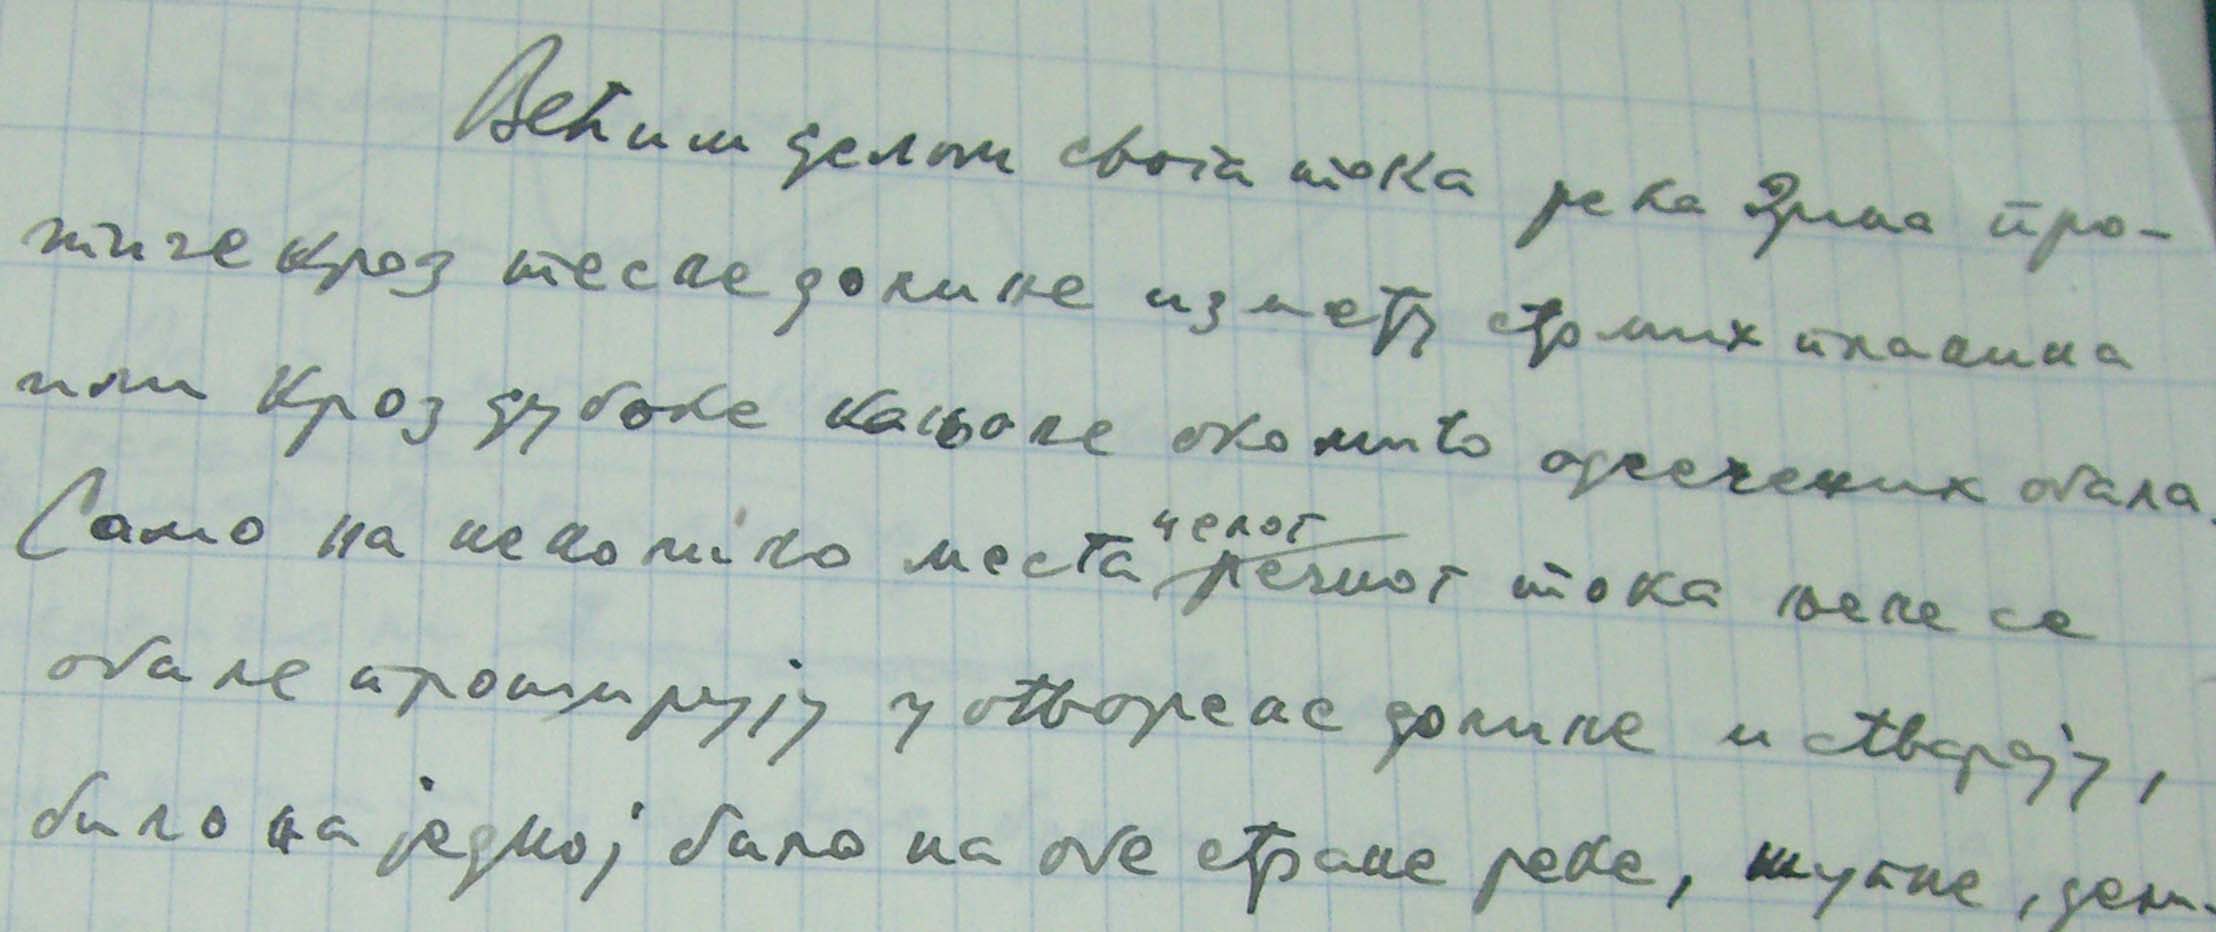 Већим делом свога тока река Дрина про-
тиче кроз тесне долине између стрмих планина
или кроз дубоке кањоне окомито одсечених обала.
Само на неколико места целог речног тока њене се
обале проширују у отворене долине и стварају,
било на једној било на обе стране реке, жупне, дели-